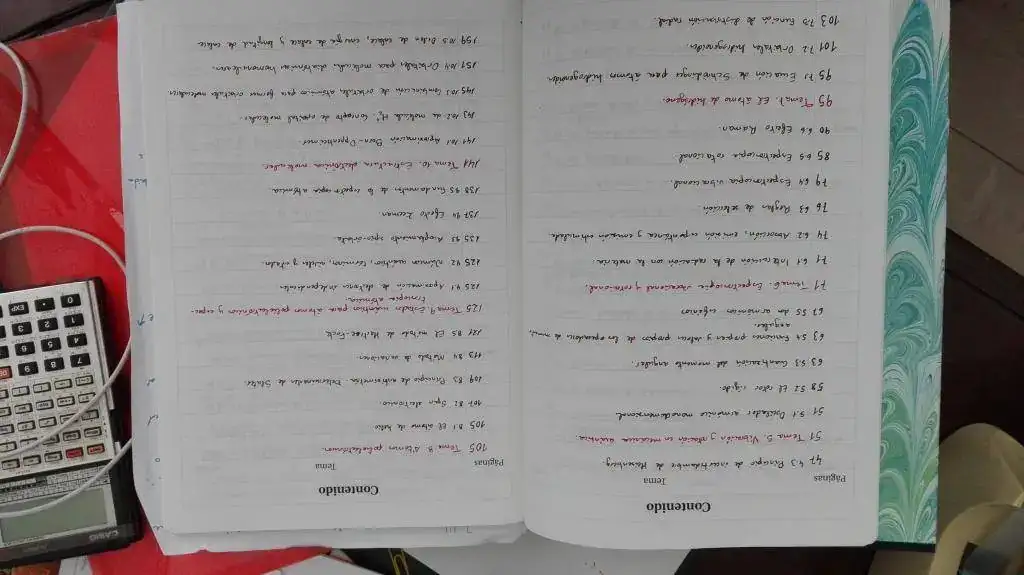 Contenido
Páginas Tema
47 4.3 Principio de incertidumbre de Heisenberg
51 Tema 5. Vibración y rotación en mecánica cuántica.
51 5.1 Oscilador armónico monodimensional
58 5.2 El rotor rígido.
63 5.3 Cuantización del momento angular.
63 5.4 Funciones propias y valores propios de los operadores de mom.
angular.
67 5.5 armónicos esféricos
71 Tema 6. Espectroscopia vibracional y rotacional.
71 6.1 Interacción de la radiación con la materia.
74 6.2 Absorción, emisión espontánea y emisión estimulada
76 6.3 Reglas de selección.
79 6.4 Espectroscopia vibracional.
85 6.5 Espectroscopia rotacional
90 6.6 Efecto Raman.
95 Tema 7. El átomo de hidrógeno.
95 7.1 Ecuación de Schrödinger para átomos hidrogenoides
101 7.2 Orbitales hidrogenoides.
103 7.3 Función de distribución radial.
Contenido
Páginas Tema
105 Tema 8. Átomos polielectrónicos.
105 8.1 El átomo de helio
107 8.2 Spin electrónico.
109 8.3 Principio de antisimetría. Determinantes de Slater
113 8.4 Método de variaciones
121 8.5 El método de Hartree-Fock
125 Tema 9. Estados cuánticos para átomos polielectrónicos y espec-
troscopia atómica.
125 9.1 Aproximación de electrones independientes
125 9.2 números cuánticos, términos, niveles y estados.
135 9.3 Acoplamiento spin-órbita.
137 9.4 Efecto Zeeman
138 9.5 Fundamentos de la espectroscopia atómica.
141 Tema 10. Estructura electrónica molecular.
141 10.1 Aproximación Born-Oppenheimer
143 10.2 molécula H₂⁺. Concepto de orbital molecular.
145 10.3 Combinación de orbitales atómicos para formar orbitales moleculares
151 10.4 Orbitales para moléculas diatómicas homonucleares.
159 10.5 Orden de enlace, energía de enlace y longitud de enlace
CASIO
0 · EXP
1 2 3
4 5 6
7 8 9